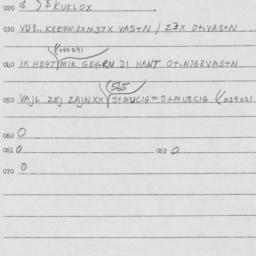 020 & ) $ KUKLOX .
030 VU8.. KEE4N3XM37X VAS+N / Z3X O+.VAS+N
(040 041
040 IX HE4T MIR GE4RN DI HANT O+.NJG8VAS+N
(565
050 VAJL ZEJ ZAJNXX S+MUCIG=S+MUECIG ((039021
060 O
061 O 062 O
070 O